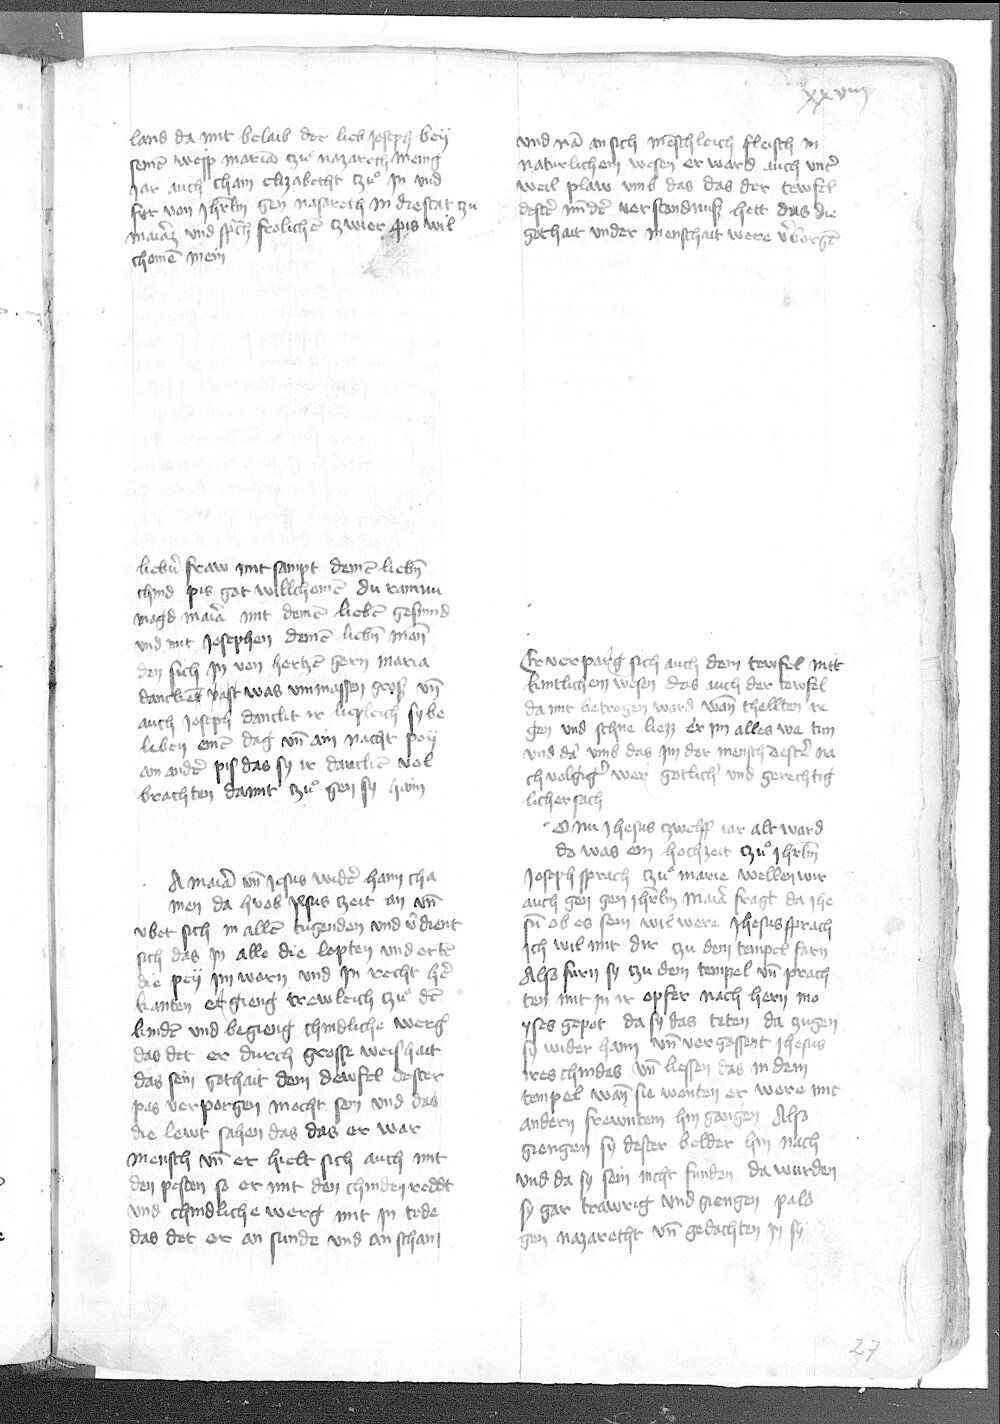 xxviij
land da mit belaib der lieb Joseph beÿ
seinē weÿp mariā tzů nazareth mening
Jar auch cham elizabetht tzů In und
fůr von Jhrlm gen nasareth In die stat zu
mariaz und sprch frölichē tzwier pis wil
chomē mein
liebů fraw mit sampt deinē liebn̄
chind pis got willchomē du rainiu
magd maiā mit deinē liebē gesinnd
und mit Josephen deinē liebn̄ man̄
den such In von hertzē gern maria
danckhet vast was unmassen gross vn̄
auch Joseph danckt ir liepleich sy be
liben einē dag vn̄ ain nacht peÿ
an andē pis das sy ir danckē vol
brachten damit tzů gen sy haim
A maiā vn̄ Jesus widē haim cha
men da hueb ihsus tzeit an vn̄
vbet sich in allē tugenden und v̄dient
sich das In alle die lopten und ertē
die peÿ im warn und In recht hē
kanten er gieng trewleich tzů dē
kindē und begieng chindliche werg
das det er durch grosse weishait
das sein gothait dem dewfel dester
pas verporgen mocht sein und das
die lewt sahen das das er war
mensch vn̄ er hielt sich auch mit
den pesten so er mit den chinden reddt
und chindliche werg mit In tede
das det er an sunde und an scham
und nā an sich mēschleich fleisch in
naturlichem wesen er ward auch unē
weil plaw umb das das der tewfel
destē mīdē verstandnuß hett das die
gothait under menschait were v̄borgē
Er verparg sich auch dem tewfel mit
kintlichem wesen das auch der tewfel
da mit betrogen ward wan̄ chellten re
gen und schne liezz er im alles we tun
und dā umb das im der mensch destē na
ch volgigē wer gotlich und gerechtig
licher sach
O nu ihesus tzwelff iar alt ward
da was ein hochzeit tzů Jhrlm
Joseph sprach tzů marie wellen wir
auch gen gen Jhrlm maiā fragt da ihe
sū ob es sein wil were Jhesus sprach
Ich wil mit dir tzu dem tempel farn
Also fůrn sy tzu dem tempel vn̄ prach
ten mit In ir opfer nach hern mo
yses gepot da sy das teten da zugen
sy wider haim vn̄ vergassent ihesus
ires chindes vn̄ liessen das in dem
tempel wan̄ sie wonten er were mit
andern frewntem hin gangen Also
giengen sy dester belder hin nach
und da sy sein nicht funden da wurden
sy gar trawrig und giengen pald
gen nazaretht vn̄ gedachten In sy
27